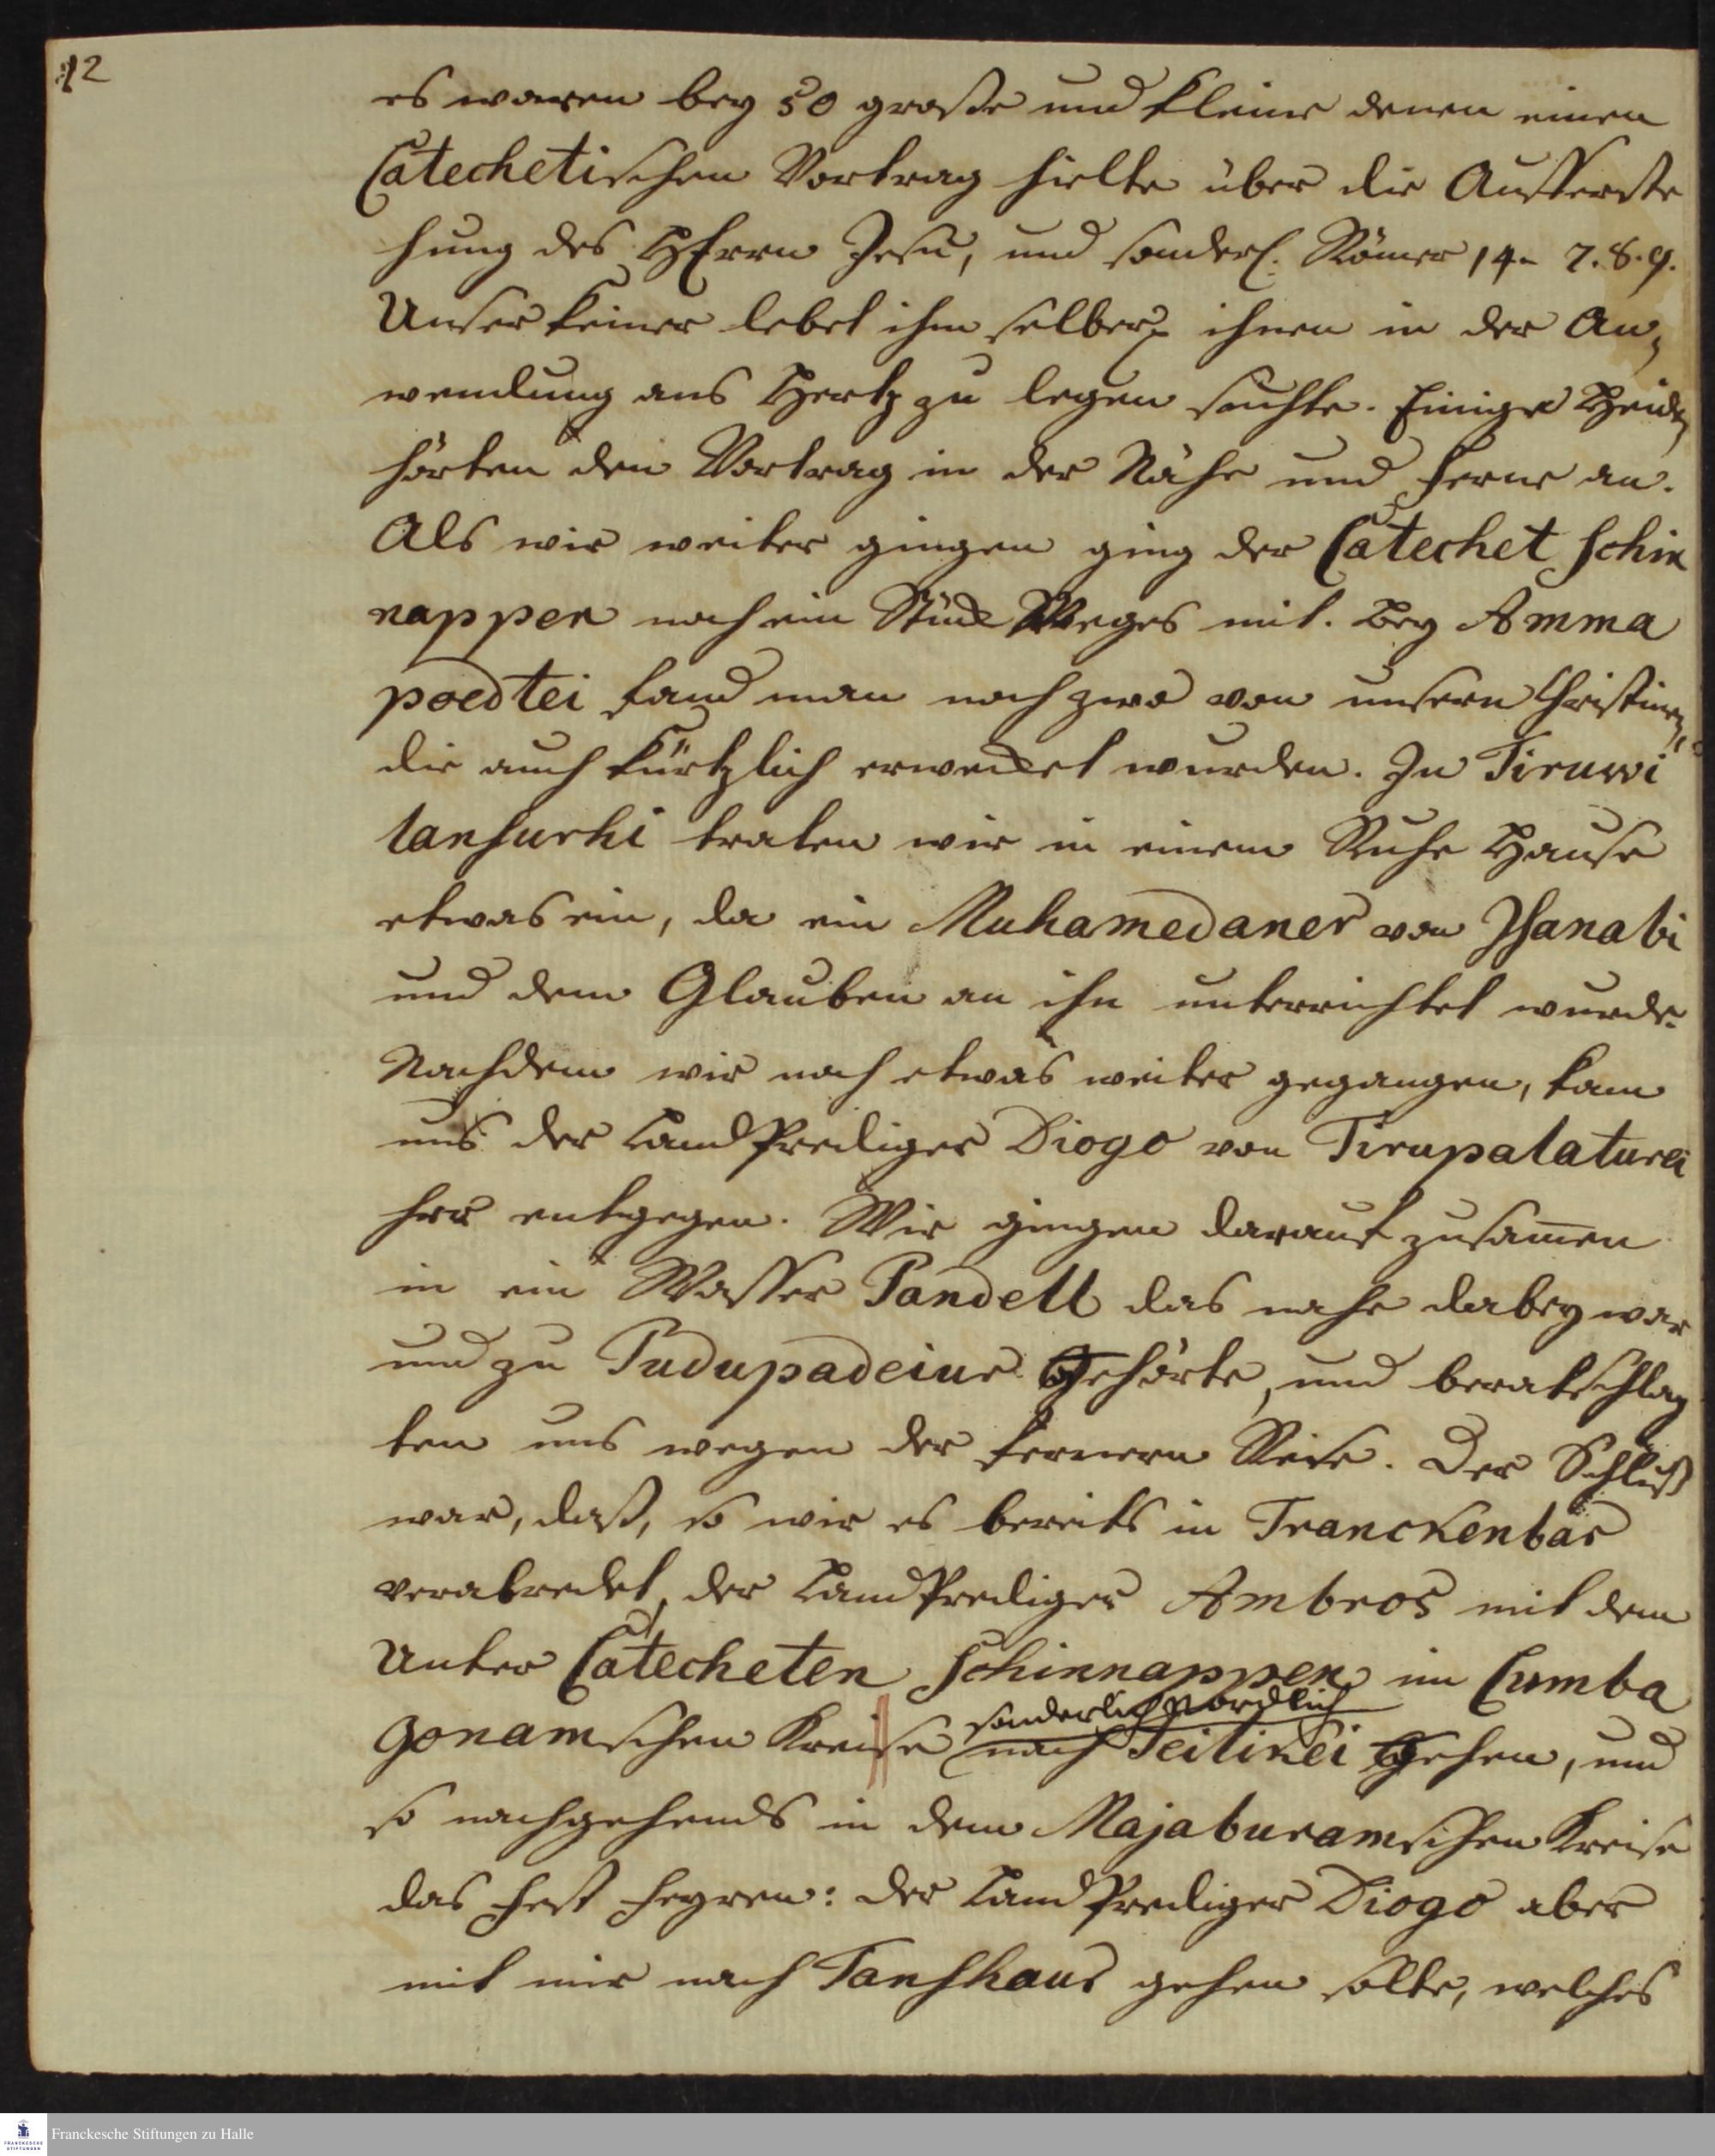 12
es waren bey 50 große und kleine denen einen
Catechetischen Vortrag hielte über die Aufferste
hung des HErrn Jesu, und sonderl. Römer 14. 7. 8. 9.
Unser keiner lebet ihm selber, ihnen in der An,
wendung ans Hertz zu legen suchte. Einige Heiden
hörten den Vortrag in der Nähe und ferne an.
Als wir weiter gingen ging der Catechet Schin
nappen noch ein Stück Weges mit. Bey Amma
poedtei fand man noch zwo von unsern Christinen,
die auch kürtzlich erwecket wurden. In Tiruwi
lansurhi traten wir in einem Ruhe Hause
etwas ein, da ein Muhamedaner von Isanabi
und dem Glauben an ihn unterrichtet wurde.
Nachdem wir noch etwas weiter gegangen, kam
uns der Land Prediger Diogo von Tirupalaturei
her entgegen. Wir gingen darauf zusam̅en
in ein Wasser Pandell das nahe dabey war
und zu Pudupadeiur Gehörte, und berathschlag
ten uns wegen der fernern Reise. Der Schluß
war, daß, so wir es bereits in Tranckenbar
verabredet, der Land Prediger Ambros mit dem
Unter Catecheten Schinnappen im Cumba
sonderlich nordlich
gonamschen Kreise nach Teilikei Gehen, und
so nachgehends in dem Majaburamschen Kreise
das Fest feyren: der Land Prediger Diogo aber
mit mir nach Tanshaur gehen solte, welches
Franckesche Stiftungen zu Halle